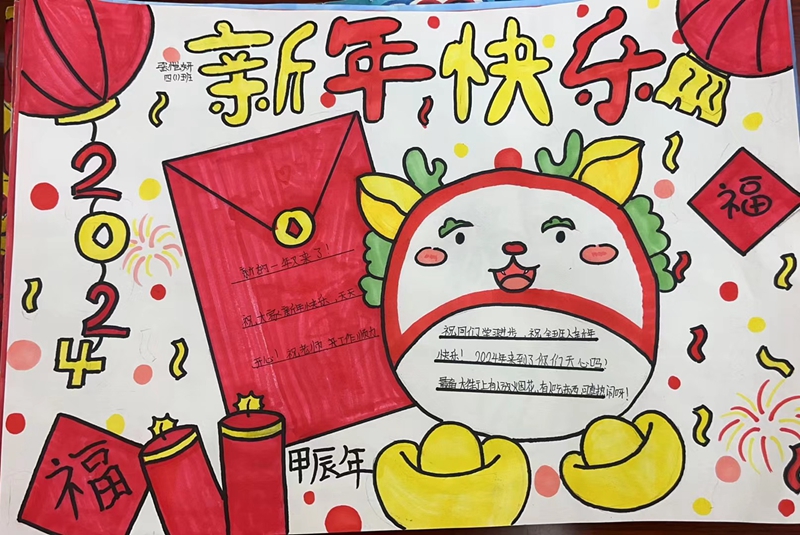 新年快乐
四(1)班
2024
福
新的一年又来了!
祝大家新年快乐,天天
开心!祝老师 年工作顺利
祝同们学进步,祝全班人新年
快乐! 2024年来到了你们开心吗?
大街上有 烟花,有 吃东西 可真热闹呀!
福
甲辰年